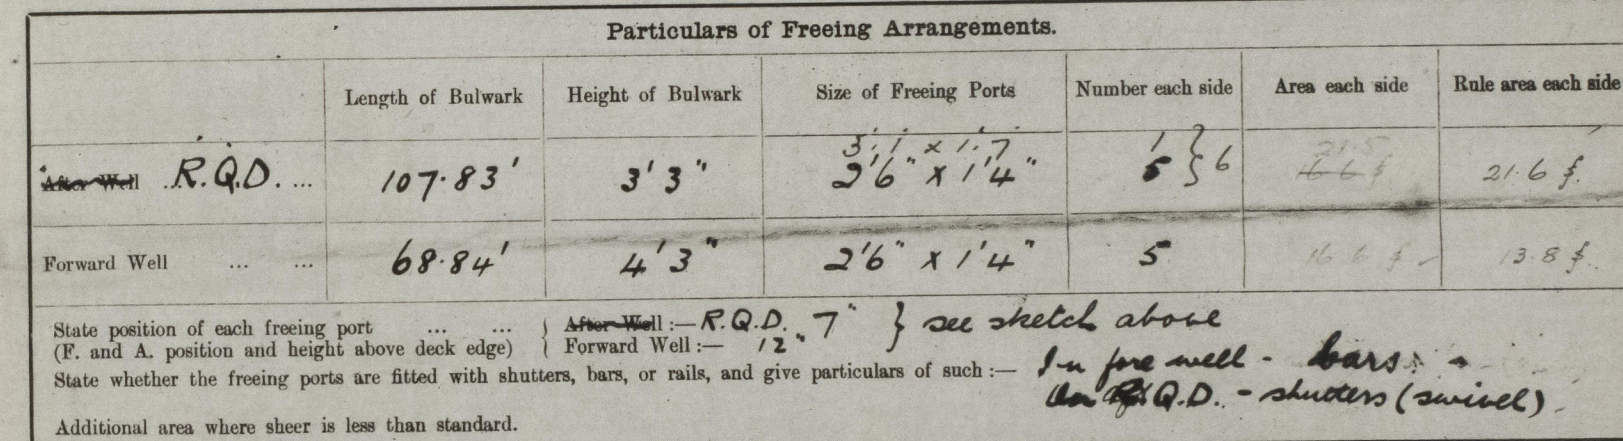 Particulars of Freeing Arrangements.
Length of Bulwark Height of Bulwark Size of Freeing Ports Number each side Area each side Rule area each side
3'.1" x 1'.7" 1 21.5
After Well R.Q.D. ... 107.83' 3'3" 2'6" x 1'4" 5 } 6 16.6 21.6
Forward Well ... ... 68.84' 4'3" 2'6" x 1'4" 5 16.6 13.8
State position of each freeing port ... ... After Well :— R.Q.D. 7" } see sketch above
(F. and A. position and height above deck edge) Forward Well :— 12"
State whether the freeing ports are fitted with shutters, bars, or rails, and give particulars of such :— In fore well - bars
On R.Q.D. - shutters (swivel).
Additional area where sheer is less than standard.